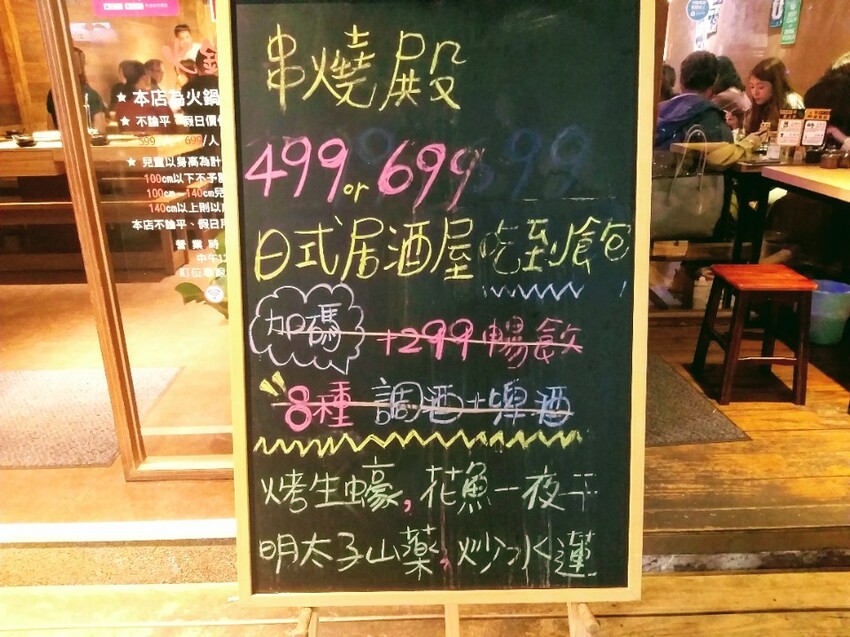 串燒殿
499 or 699
日式居酒屋吃到飽
加碼 +299暢飲
8種 調酒+啤酒
烤生蠔,花魚一夜干
明太子山藥,炒水蓮
★ 本店為火鍋
★ 不論平、假日價
599 699/人
★ 兒童以身高為計
100cm以下不予
100cm-140cm兒
140cm以上則以
本店不論平、假日用
營業時
中午12
訂位專線